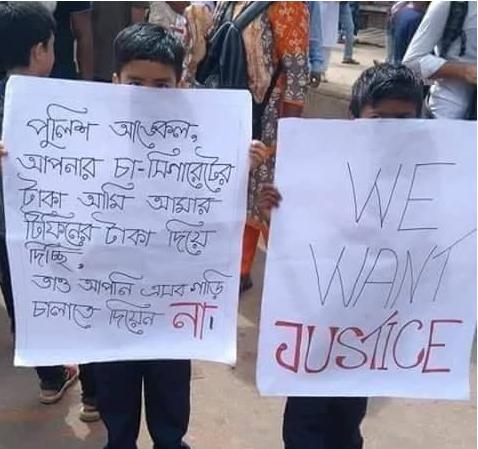 পুলিশ আঙ্কেল,
আপনার চা-সিগারেটের
টাকা আমি আমার
টিফিনের টাকা দিয়ে
দিচ্ছি,
তাও আপনি এসব গাড়ি
চালাতে দিয়েন না।
WE
WANT
JUSTICE